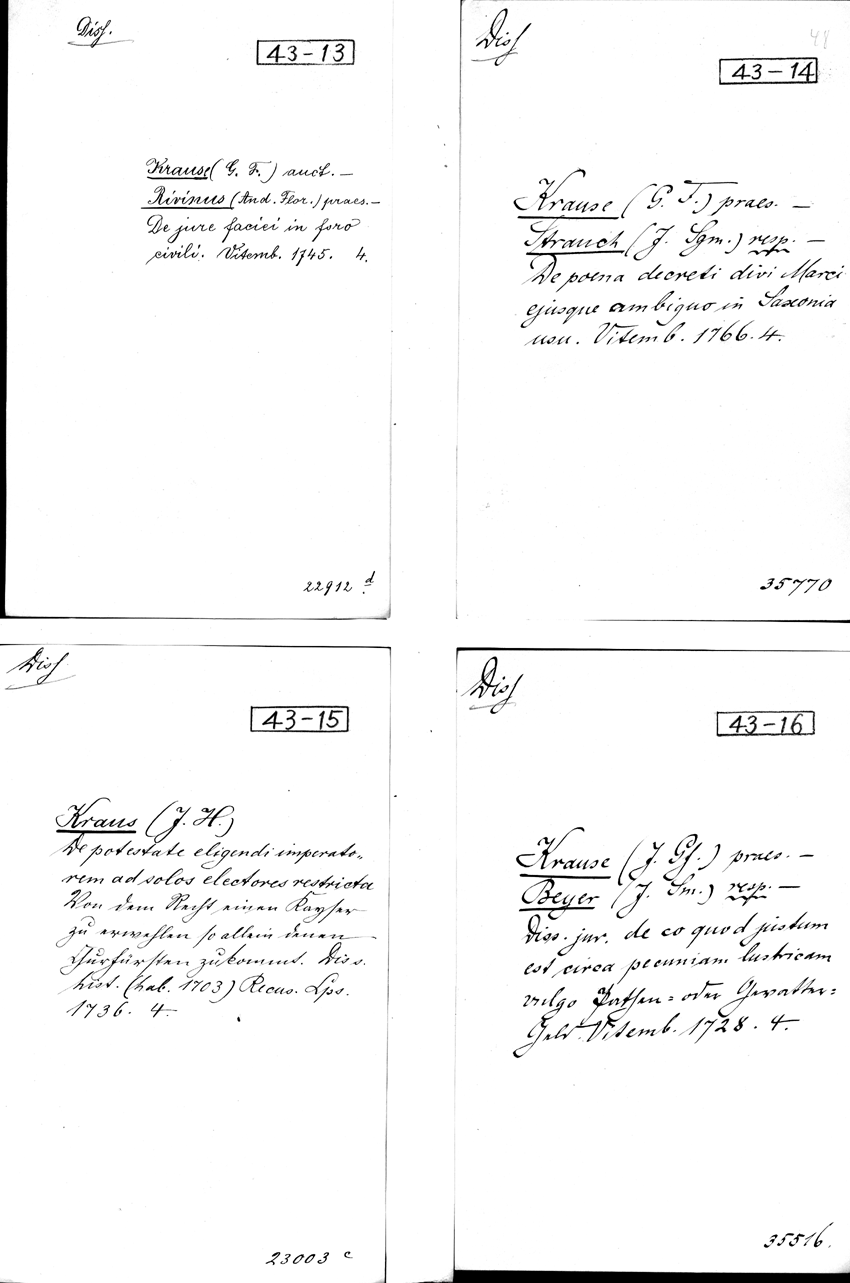 Diss.
43-13
Krause (G. F.) auct. —
Rivinus (And. Flor.) praes. —
De jure faciei in foro
civili. Vitemb. 1745. 4.
22912 d.
Diss
48
43-14
Krause (G. F.) praes. —
Strauch (J. Sgm.) resp. —
De poena decreti divi Marci
ejusque ambiguo in Saxonia
usu. Vitemb. 1766. 4.
35770
Diss
43-15
Kraus (J. H.)
De potestate eligendi imperato-
rem ad solos electores restricta
Von dem Recht einen Kayser
zu erwehlen so allein denen
Churfürsten zukommt. Diss.
hist. (hab. 1703) Recus. Lps.
1736. 4.
23003 c
Diss
43-16
Krause (J. Gf.) praes. —
Beyer (J. Sm.) resp. —
Diss. jur. de eo quod justum
est circa pecuniam lustricam
vulgo Pathen= oder Gevatter=
Geld. Vitemb. 1728. 4.
35516.